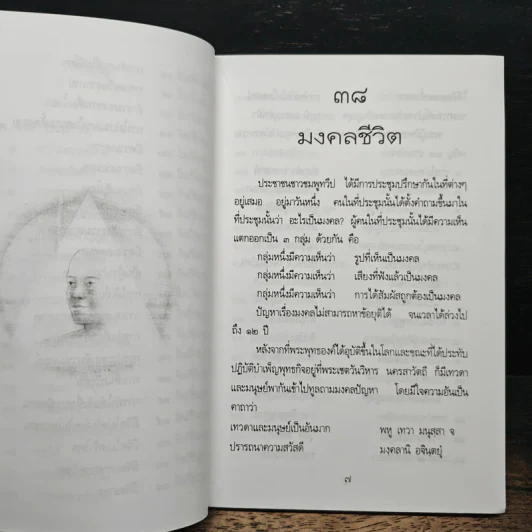 ๓๘
มงคลชีวิต
ประชาชนชาวชมพูทวีป ได้มีการประชุมปรึกษากันในที่ต่างๆ
อยู่เสมอ อยู่มาวันหนึ่ง คนในที่ประชุมนั้นได้ตั้งคำถามขึ้นมาใน
ที่ประชุมนั้นว่า อะไรเป็นมงคล? ผู้คนในที่ประชุมนั้นได้มีความเห็น
แตกออกเป็น ๓ กลุ่ม ด้วยกัน คือ
กลุ่มหนึ่งมีความเห็นว่า รูปที่เห็นเป็นมงคล
กลุ่มหนึ่งมีความเห็นว่า เสียงที่ฟังแล้วเป็นมงคล
กลุ่มหนึ่งมีความเห็นว่า การได้สัมผัสถูกต้องเป็นมงคล
ปัญหาเรื่องมงคลไม่สามารถหาข้อยุติได้ จนเวลาได้ล่วงไป
ถึง ๑๒ ปี
หลังจากที่พระพุทธองค์ได้อุบัติขึ้นในโลกและขณะที่ได้ประทับ
ปฏิบัติบำเพ็ญพุทธกิจอยู่ที่พระเชตวันวิหาร นครสาวัตถี ก็มีเทวดา
และมนุษย์พากันเข้าไปทูลถามมงคลปัญหา โดยมีใจความอันเป็น
คาถาว่า
เทวดาและมนุษย์เป็นอันมาก พหู เทวา มนุสฺสา จ
ปรารถนาความสวัสดี มงฺคลานิ อจินฺตยุํ
๗